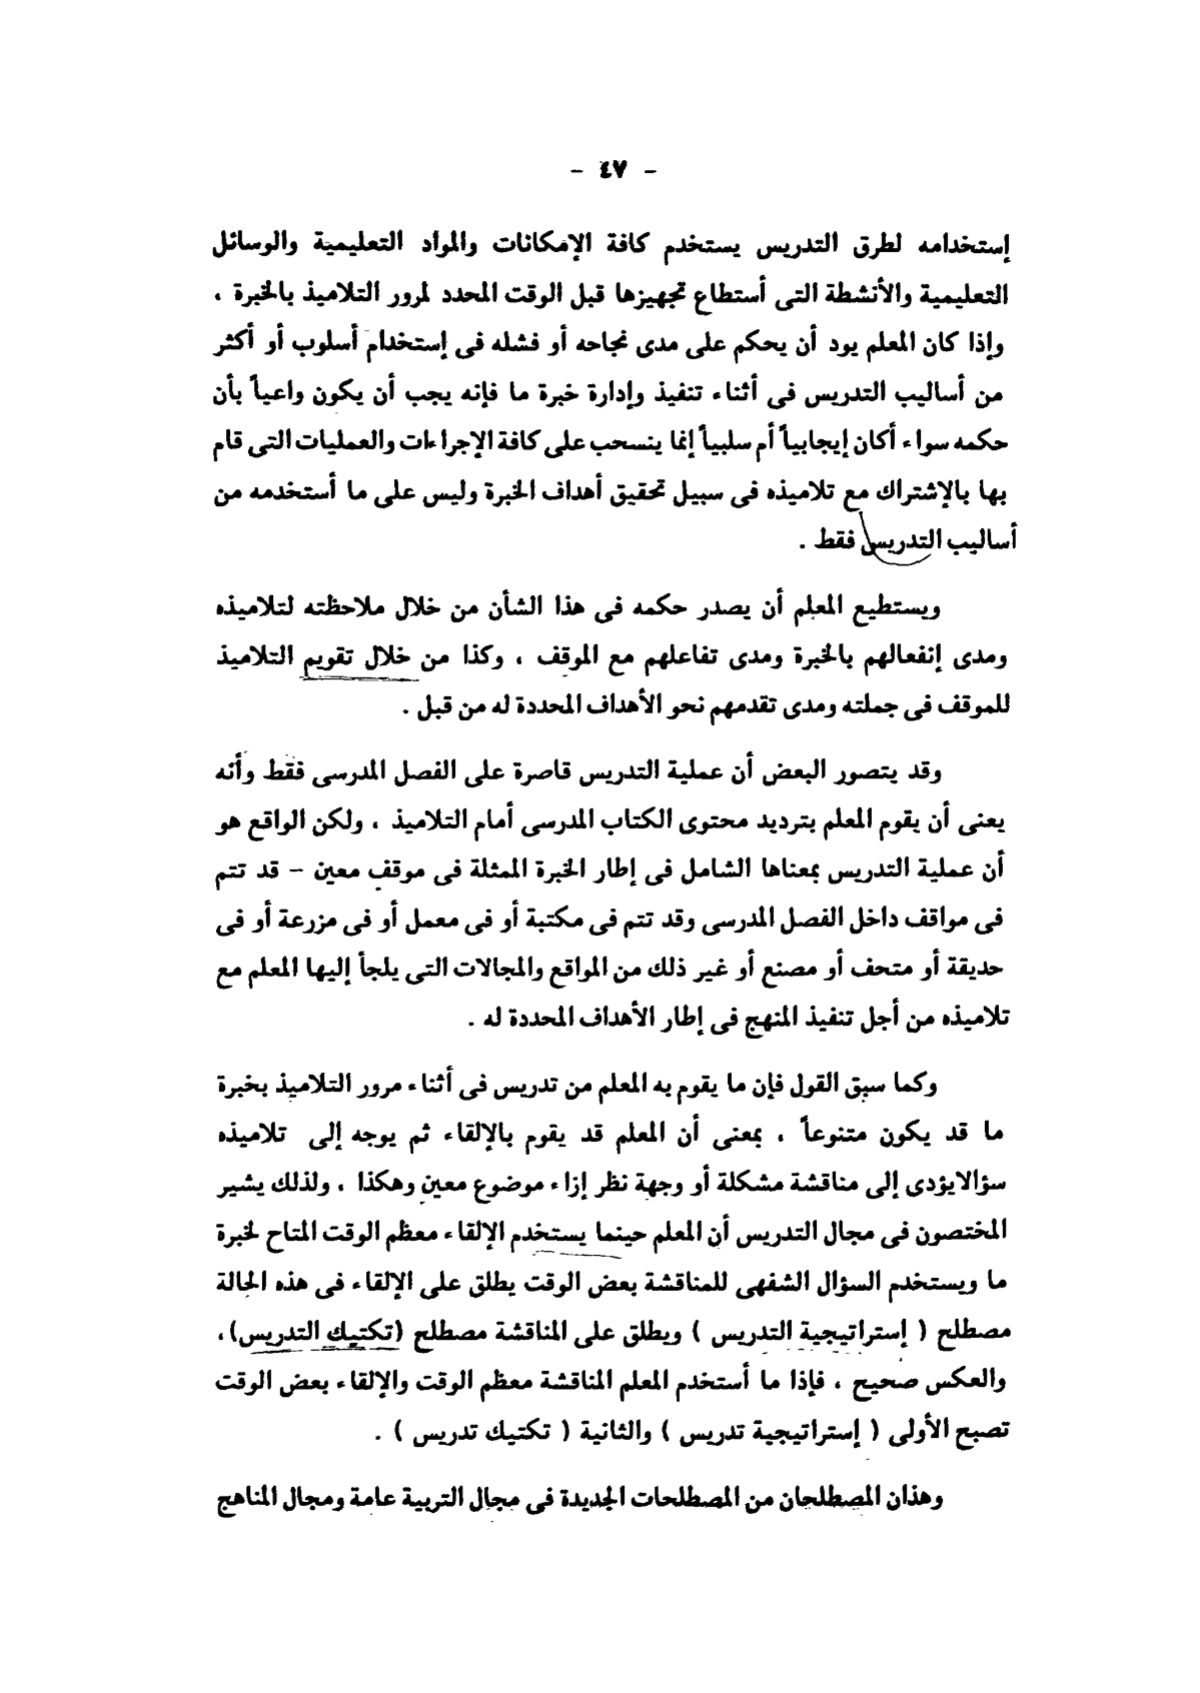 - ٤٧ -
إستخدامه لطرق التدريس يستخدم كافة الإمكانات والمواد التعليمية والوسائل
التعليمية والأنشطة التى أستطاع تجهيزها قبل الوقت المحدد لمرور التلاميذ بالخبرة ،
وإذا كان المعلم يود أن يحكم على مدى نجاحه أو فشله فى إستخدام أسلوب أو أكثر
من أساليب التدريس فى أثناء تنفيذ وإدارة خبرة ما فإنه يجب أن يكون واعياً بأن
حكمه سواء أكان إيجابياً أم سلبياً إنما ينسحب على كافة الإجراءات والعمليات التى قام
بها بالإشتراك مع تلاميذه فى سبيل تحقيق أهداف الخبرة وليس على ما أستخدمه من
أساليب التدريس فقط .
ويستطيع المعلم أن يصدر حكمه فى هذا الشأن من خلال ملاحظته لتلاميذه
ومدى إنفعالهم بالخبرة ومدى تفاعلهم مع الموقف ، وكذا من خلال تقويم التلاميذ
للموقف فى جملته ومدى تقدمهم نحو الأهداف المحددة له من قبل .
وقد يتصور البعض أن عملية التدريس قاصرة على الفصل المدرسى فقط وأنه
يعنى أن يقوم المعلم بترديد محتوى الكتاب المدرسى أمام التلاميذ ، ولكن الواقع هو
أن عملية التدريس بمعناها الشامل فى إطار الخبرة الممثلة فى موقف معين - قد تتم
فى مواقف داخل الفصل المدرسى وقد تتم فى مكتبة أو فى معمل أو فى مزرعة أو فى
حديقة أو متحف أو مصنع أو غير ذلك من المواقع والمجالات التى يلجأ إليها المعلم مع
تلاميذه من أجل تنفيذ المنهج فى إطار الأهداف المحددة له .
وكما سبق القول فإن ما يقوم به المعلم من تدريس فى أثناء مرور التلاميذ بخبرة
ما قد يكون متنوعاً ، بمعنى أن المعلم قد يقوم بالإلقاء ثم يوجه إلى تلاميذه
سؤالايؤدى إلى مناقشة مشكلة أو وجهة نظر إزاء موضوع معين وهكذا ، ولذلك يشير
المختصون فى مجال التدريس أن المعلم حينما يستخدم الإلقاء معظم الوقت المتاح لخبرة
ما ويستخدم السؤال الشفهى للمناقشة بعض الوقت يطلق على الإلقاء فى هذه الحالة
مصطلح ( إستراتيجية التدريس ) ويطلق على المناقشة مصطلح (تكتيك التدريس) ،
والعكس صحيح ، فإذا ما أستخدم المعلم المناقشة معظم الوقت والإلقاء بعض الوقت
تصبح الأولى ( إستراتيجية تدريس ) والثانية ( تكتيك تدريس ) .
وهذان المصطلحان من المصطلحات الجديدة فى مجال التربية عامة ومجال المناهج